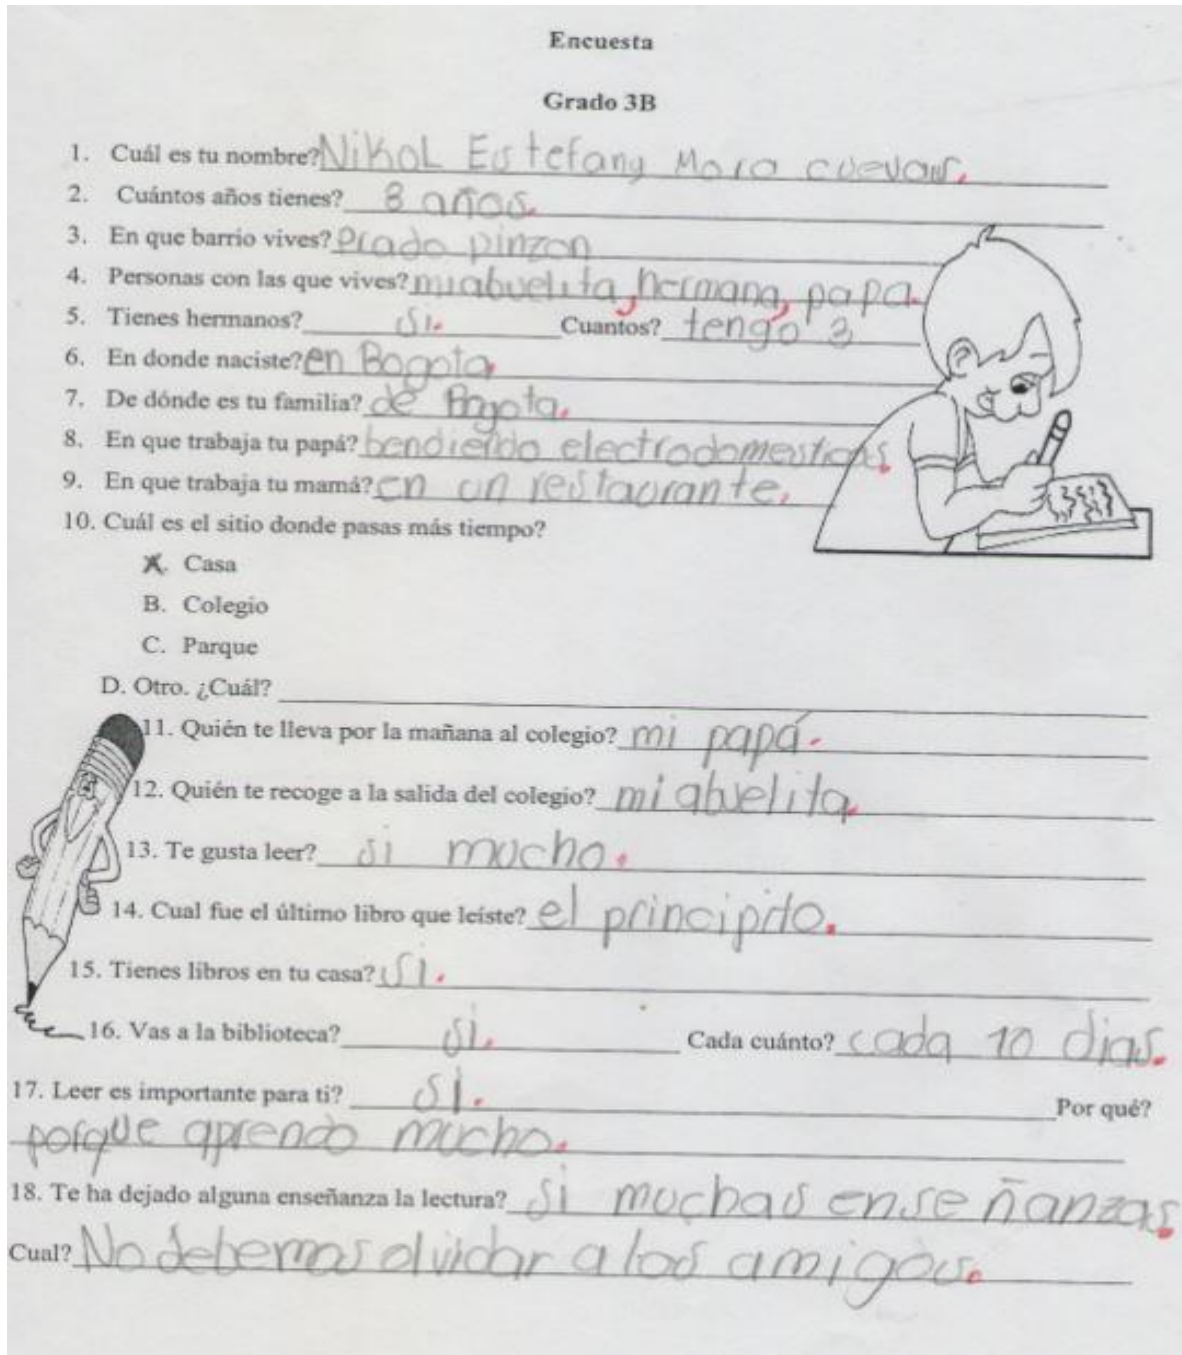 Encuesta
Grado 3B
1. Cuál es tu nombre? Nikol Estefany Mora cuevas.
2. Cuántos años tienes? 8 años.
3. En que barrio vives? Prado pinzon
4. Personas con las que vives? mi abuelita, hermana, papa.
5. Tienes hermanos? si. Cuantos? tengo 3
6. En donde naciste? en Bogota.
7. De dónde es tu familia? de Bogota.
8. En que trabaja tu papá? bendiendo electrodomesticos.
9. En que trabaja tu mamá? en un restaurante.
10. Cuál es el sitio donde pasas más tiempo?
A. Casa
B. Colegio
C. Parque
D. Otro. ¿Cuál?
11. Quién te lleva por la mañana al colegio? mi papá.
12. Quién te recoge a la salida del colegio? mi abuelita.
13. Te gusta leer? si mucho.
14. Cual fue el último libro que leíste? el principito.
15. Tienes libros en tu casa? si.
16. Vas a la biblioteca? si. Cada cuánto? cada 10 dias.
17. Leer es importante para ti? si. Por qué?
porque aprendo mucho.
18. Te ha dejado alguna enseñanza la lectura? si muchas enseñanzas.
Cual? No debemos olvidar a los amigos.